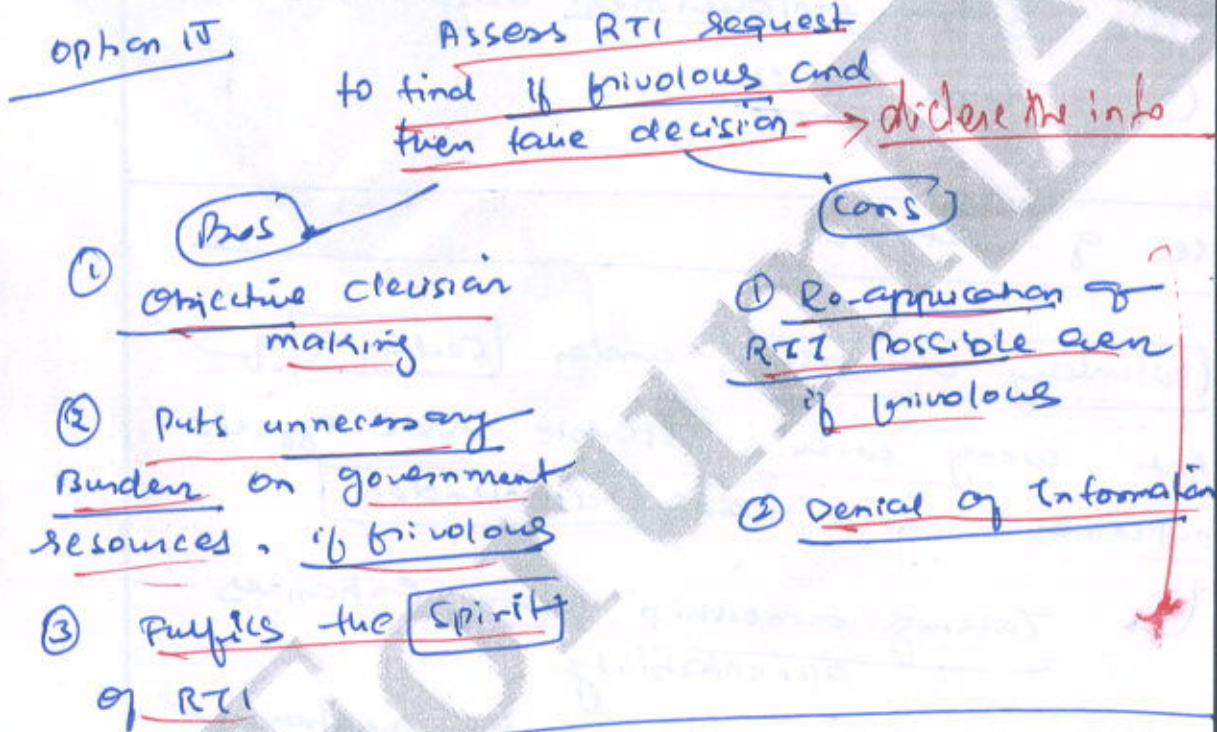 option IV
Assess RTI request
to find if frivolous and
then take decision → disclose the info
Pros
① Objective decision
making
② Puts unnecessary
Burden on government
resources, if frivolous
③ Fulfils the Spirit
of RTI
Cons
① Re-application of
RTI Possible even
if frivolous
② Denial of Information
ForumIA